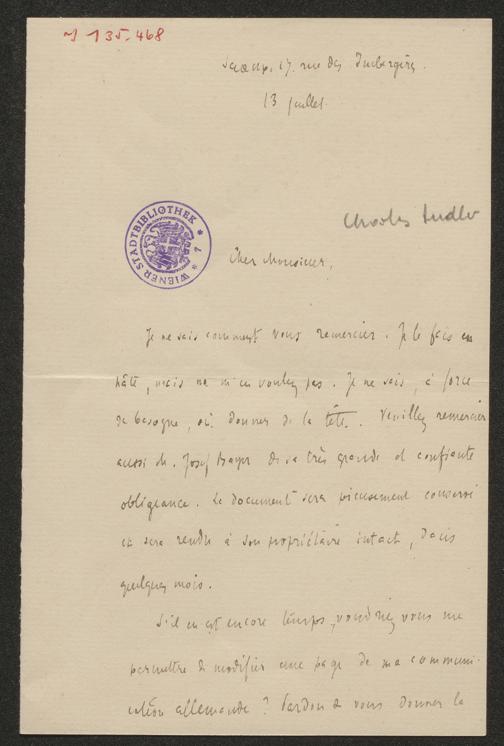 J 135.468
Sceaux, 17 rue des Imbergères.
13 juillet.
Charles Andler
WIENER STADTBIBLIOTHEK
Cher Monsieur,
Je ne sais comment vous remercier. Je le fais en
hâte, mais ne m'en voulez pas. Je ne sais, à force
de besogne, où donner de la tête. Veuillez remercier
aussi M. Josef Bayer de sa très grande et confiante
obligeance. Le document sera pieusement conservé
et sera rendu à son propriétaire intact, dans
quelques mois.
S'il en est encore temps, voudriez vous me
permettre de modifier une page de ma communi-
cation allemande ? Pardon de vous donner le